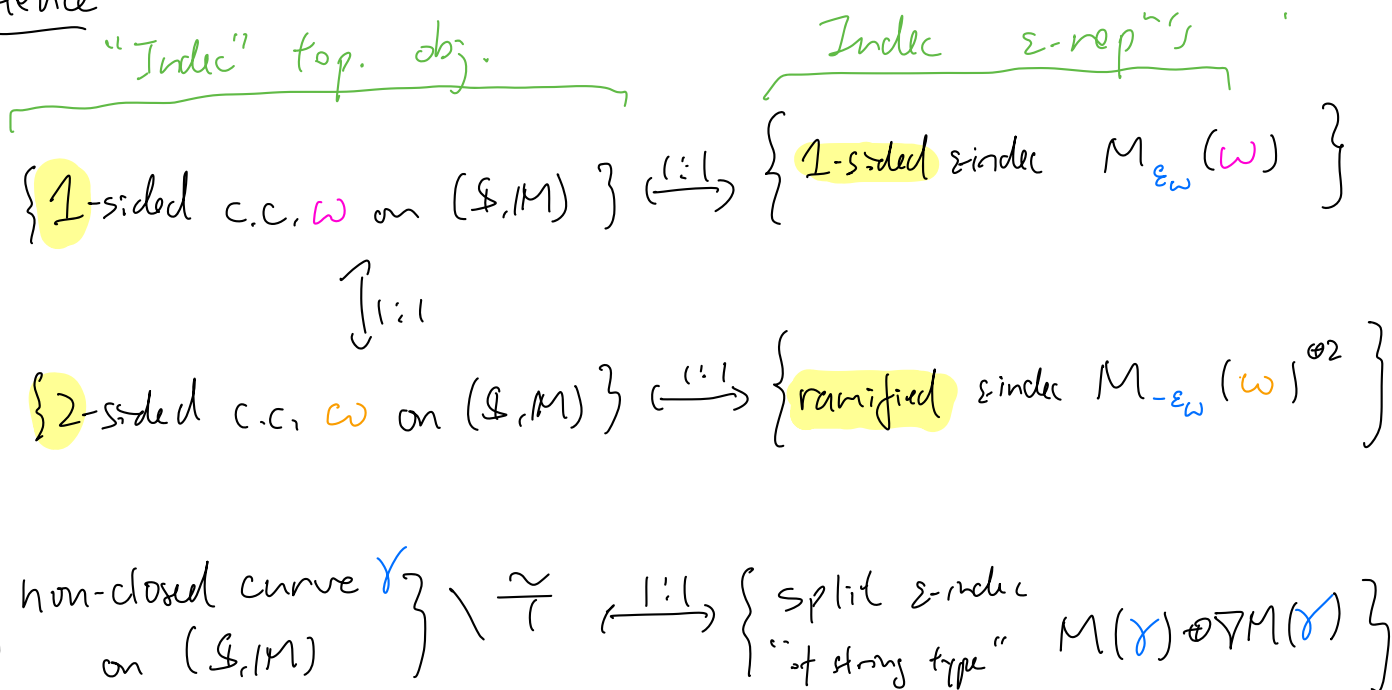 "Indec" top. obj.
Indec ε-repⁿ's
{1-sided c.c. ω on ($,M)} ⟷ 1:1 {1-sided ε-indec M_{ε_ω}(ω)}
↕ 1:1
{2-sided c.c. ω on ($,M)} ⟷ 1:1 {ramified ε-indec M_{-ε_ω}(ω)^{⊕2}}
non-closed curve γ
on ($,M) } \ ~ ⟷ 1:1 { split ε-indec
"of string type" M(γ)⊕∇M(γ)}